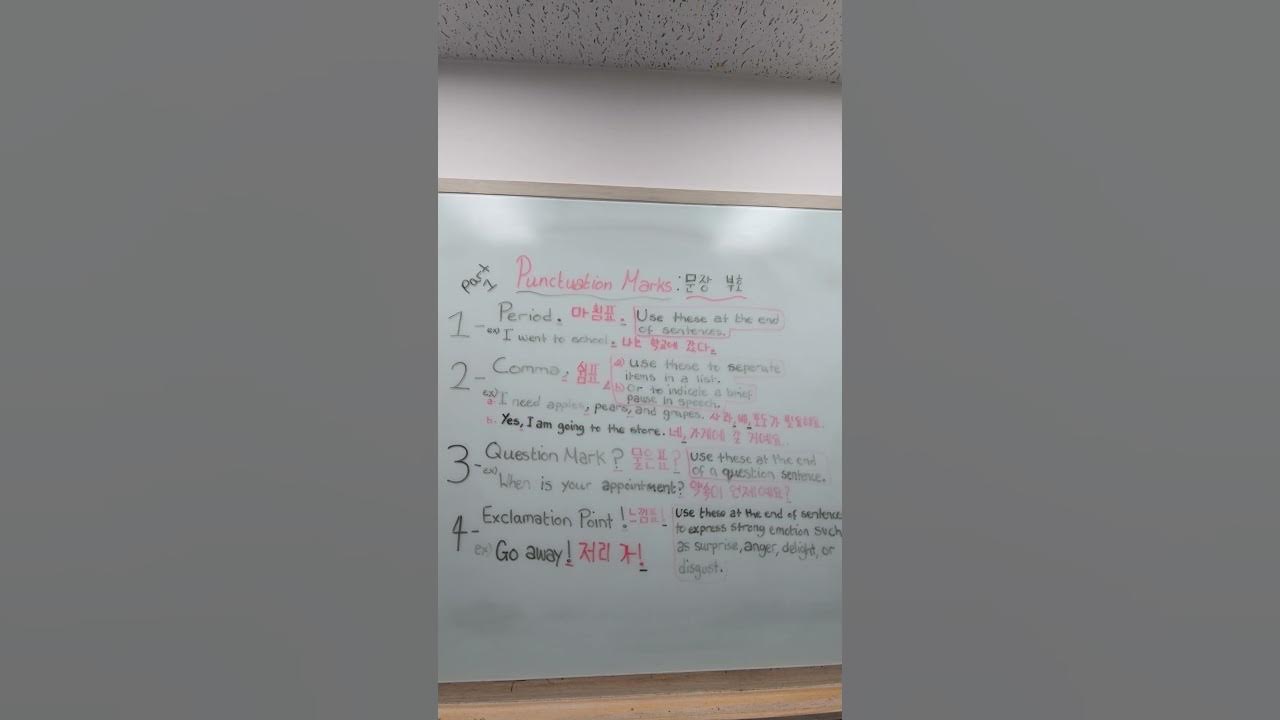 Part 1
Punctuation Marks : 문장 부호
1 - Period. 마침표. Use these at the end
of sentences.
ex) I went to school. 나는 학교에 갔다.
2 - Comma, 쉼표, a) Use these to seperate
items in a list.
b) Or to indicate a brief
pause in speech.
ex)
a. I need apples, pears, and grapes. 사과, 배, 포도가 필요해요.
b. Yes, I am going to the store. 네, 가게에 갈 거예요.
3 - Question Mark ? 물음표? Use these at the end
of a question sentence.
ex) When is your appointment? 약속이 언제예요?
4 - Exclamation Point ! 느낌표! Use these at the end of sentence
to express strong emotion such
as surprise, anger, delight, or
disgust.
ex) Go away! 저리 가!